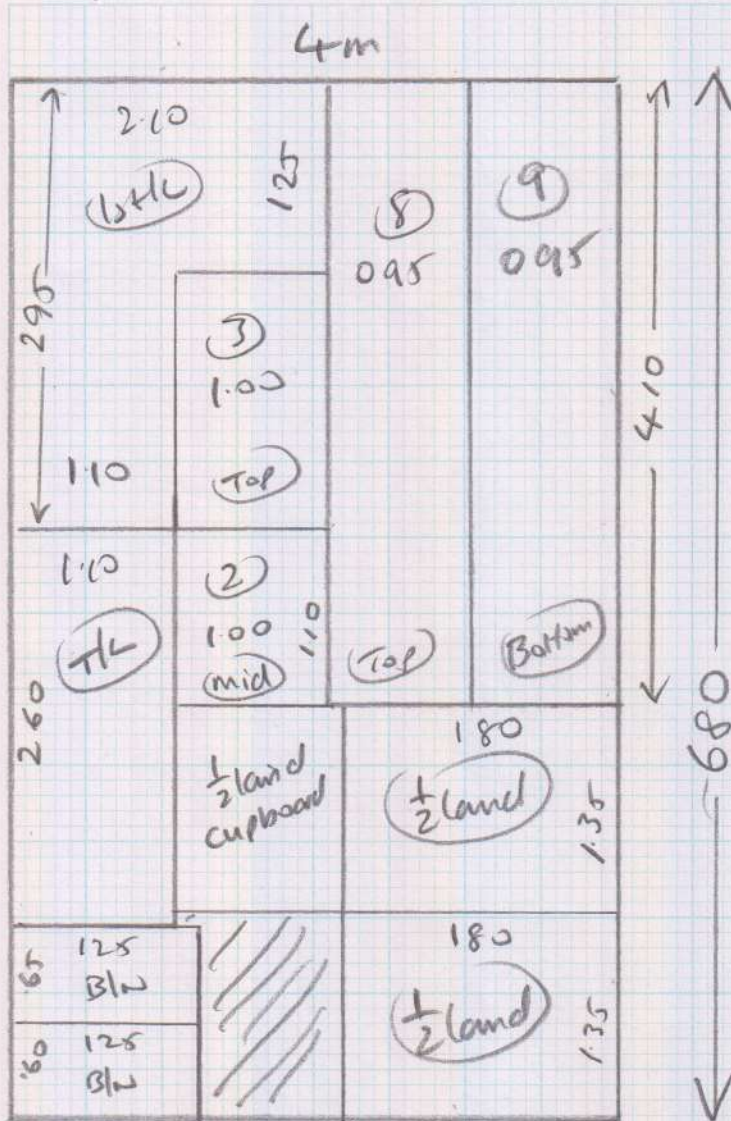 4m
2.10
125
295
1.10
3
1.00
Top
8
095
Top
9
095
Bottom
410
680
1.10
T/L
260
2
1.00
mid
110
1/2 land
cupboard
180
1/2 land
1.35
.65
125
B/N
.60
125
B/N
180
1/2 land
1.35